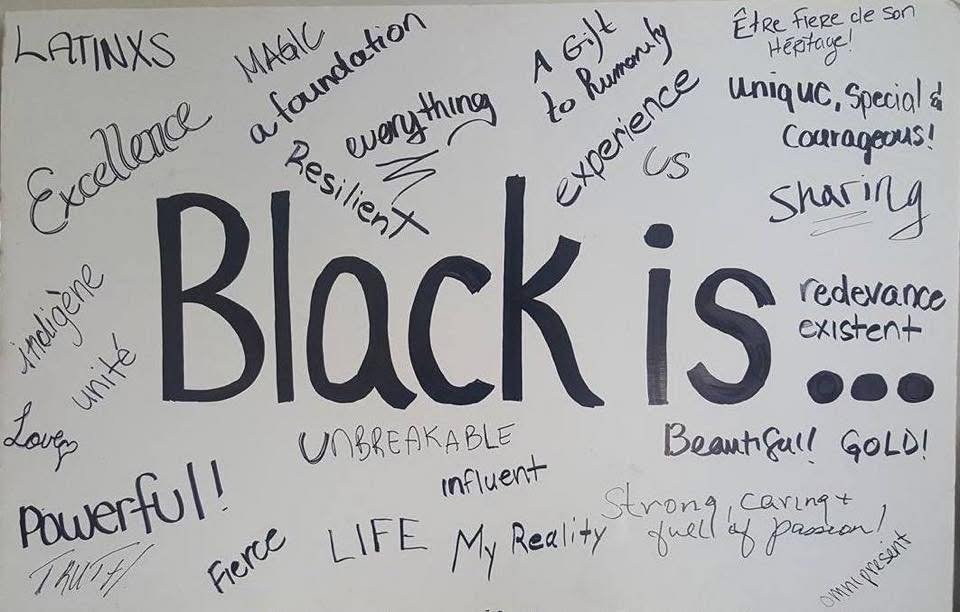 LATINXS
MAGIC
a foundation
A Gift
to Humanity
Être fiere de son
Héritage!
Excellence
everything
Resilient
experience
US
unique, special &
courageous!
sharing
Black is...
indigène
unité
redevance
existent
Love
UNBREAKABLE
influent
Beautiful! GOLD!
Powerful!
TRUTH
Fierce
LIFE
My Reality
Strong, caring +
full of passion!
omnipresent